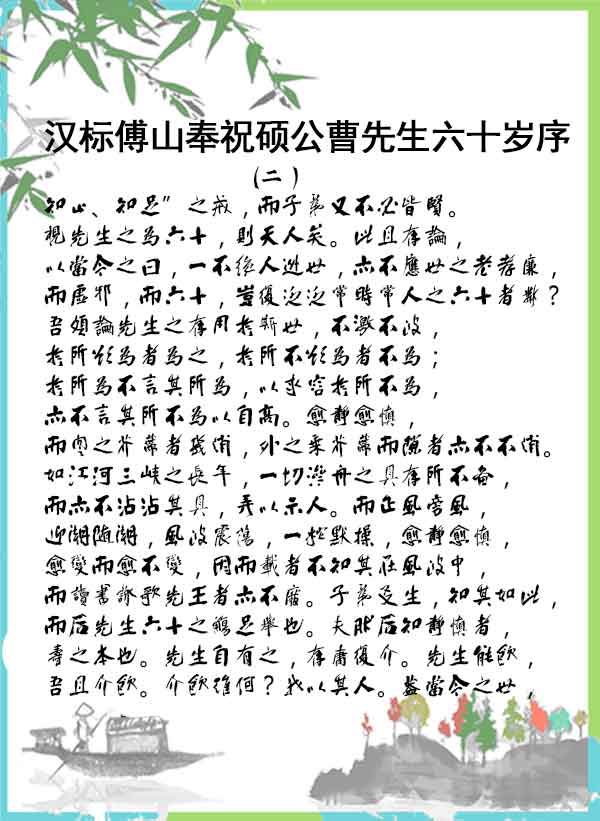 汉标傅山奉祝硕公曹先生六十岁序
（二）
知止、知足”之戒，而子弟又不必皆賢。
視先生之為六十，則天人矣。此且存論，
以當今之日，一不絕人逃世，亦不應世之老孝廉，
而虛邪，而六十，豈復泛泛常時常人之六十者歟？
吾頌論先生之存用於斯世，不激不波，
於所欲為者為之，於所不欲為者不為；
於所為不言其所為，以求容於所不為，
亦不言其所不為以自高。愈靜愈慎，
而內之芥蒂者幾消，外之乘芥蒂而隙者亦不不消。
如江河三峽之長年，一切濟舟之具存所不备，
而亦不沾沾其具，弄以示人。而正風旁風，
迎潮隨潮，風波震蕩，一松默操，愈靜愈慎，
愈變而愈不變，因而載者不知其在風波中，
而讀書詠歌先王者亦不廢。子弟友生，知其如此，
而后先生六十之觴足舉也。夫然后知靜慎者，
壽之本也。先生自有之，存庸復介。先生能飲，
吾且介飲。介飲維何？我以其人。蓋當今之世，